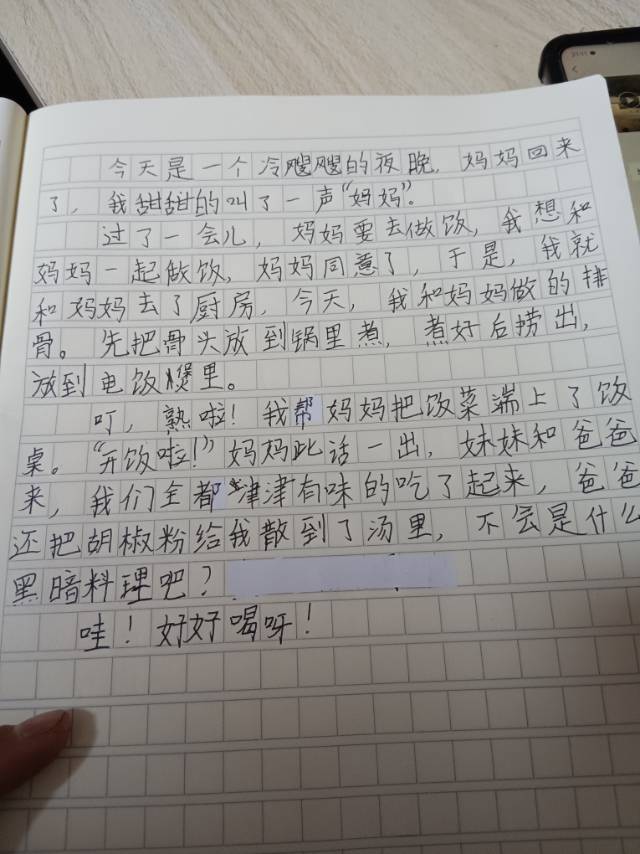 今天是一个冷飕飕的夜晚，妈妈回来
了，我甜甜的叫了一声“妈妈”。
过了一会儿，妈妈要去做饭，我想和
妈妈一起做饭，妈妈同意了，于是，我就
和妈妈去了厨房，今天，我和妈妈做的排
骨。先把骨头放到锅里煮，煮好后捞出，
放到电饭煲里。
叮，熟啦！我帮妈妈把饭菜端上了饭
桌。“开饭啦！”妈妈此话一出，妹妹和爸爸
来，我们全都津津有味的吃了起来，爸爸
还把胡椒粉给我散到了汤里，不会是什么
黑暗料理吧？
哇！好好喝呀！